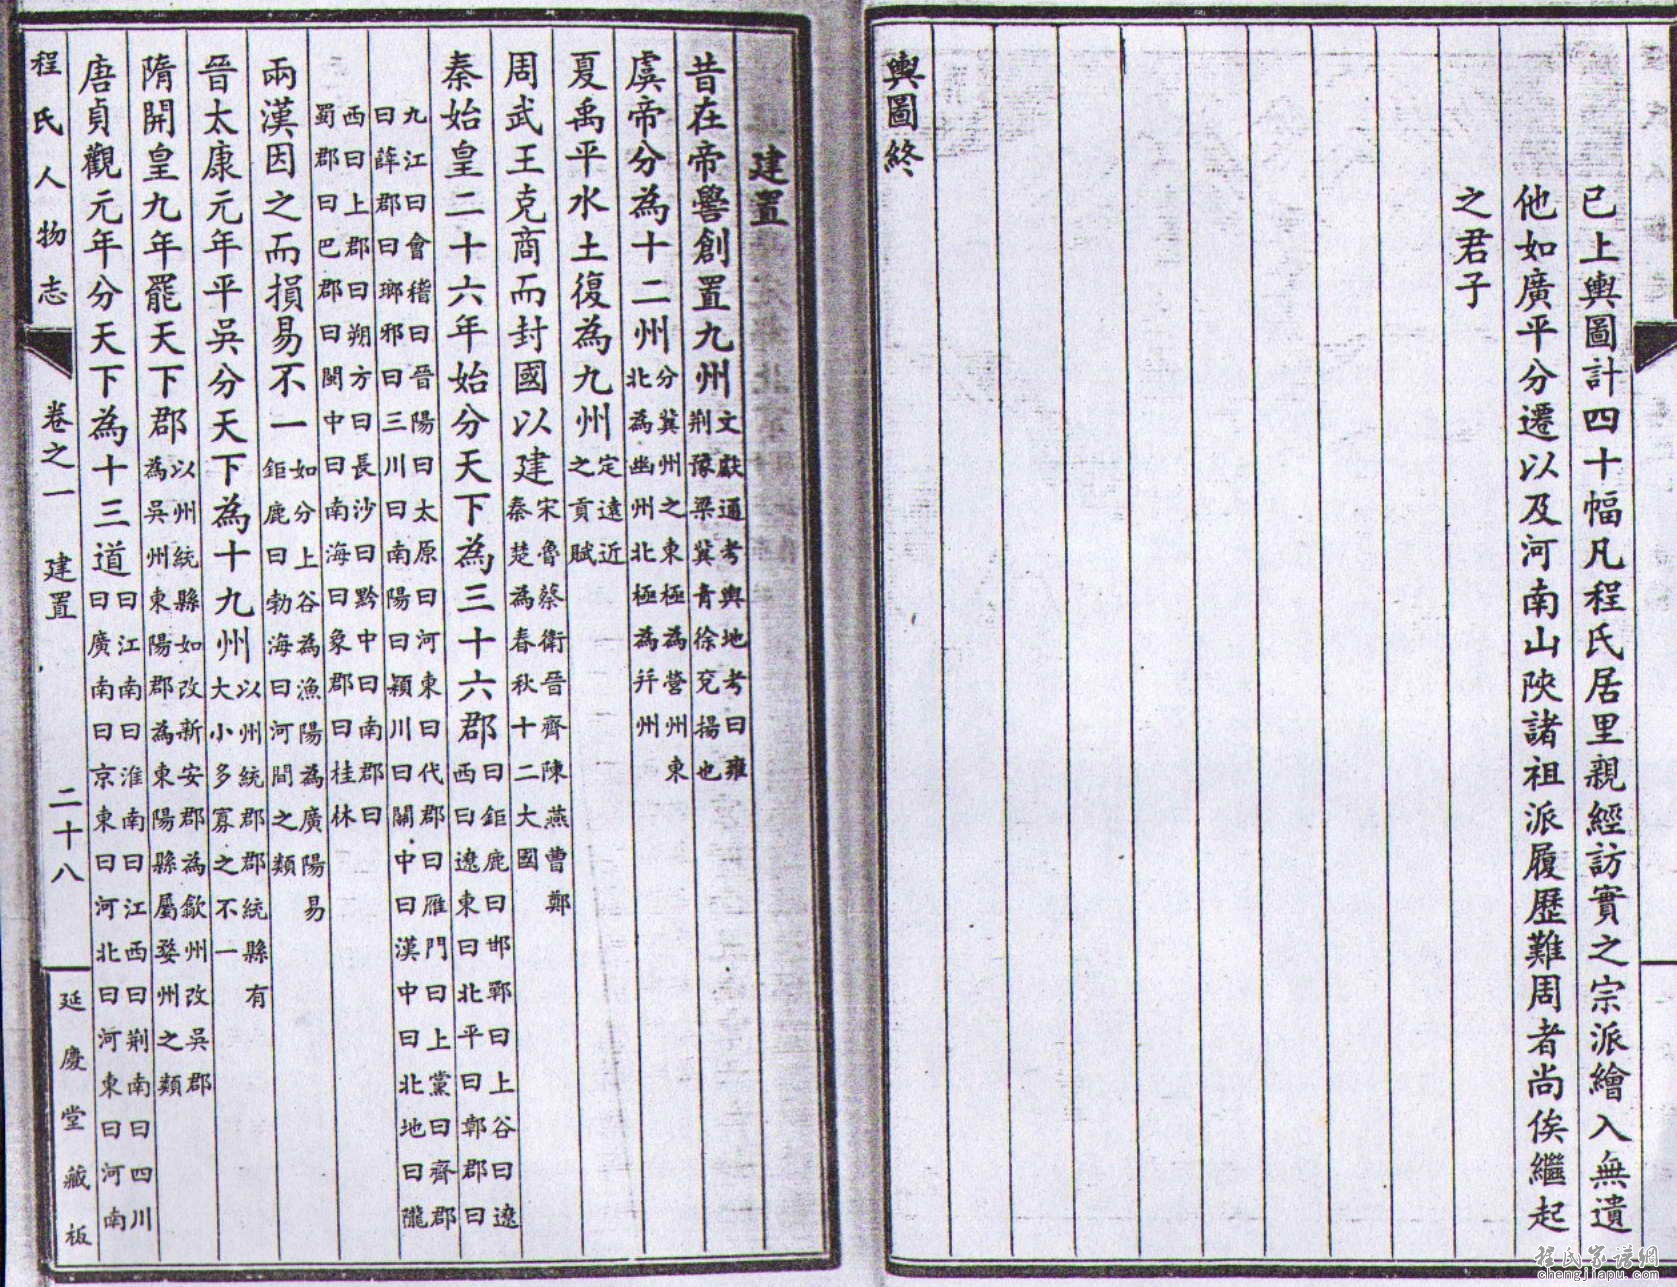 已上輿圖計四十幅凡程氏居里親經訪實之宗派繪入無遺
他如廣平分遷以及河南山陝諸祖派履歷難周者尚俟繼起
之君子
輿圖終
建置
昔在帝嚳創置九州文獻通考輿地考曰雍
荆豫梁冀青徐兗揚也
虞帝分為十二州分冀州之東極為營州東
北為幽州北極為幷州
夏禹平水土復為九州定遠近
之貢賦
周武王克商而封國以建宋魯蔡衛晉齊陳燕曹鄭
秦楚為春秋十二大國
秦始皇二十六年始分天下為三十六郡曰鉅鹿曰邯鄲曰上谷曰遼
西曰遼東曰北平曰鄣郡曰
九江曰會稽曰晉陽曰太原曰河東曰代郡曰雁門曰上黨曰齊郡
曰薛郡曰瑯邪曰三川曰南陽曰潁川曰關中曰漢中曰北地曰隴
西曰上郡曰朔方曰長沙曰黔中曰南郡曰
蜀郡曰巴郡曰閩中曰南海曰象郡曰桂林
兩漢因之而損易不一如分上谷為漁陽為廣陽易
鉅鹿曰勃海曰河間之類
晉太康元年平吳分天下為十九州以州統郡郡統縣有
大小多寡之不一
隋開皇九年罷天下郡以州統縣如改新安郡為歙州改吳郡
為吳州東陽郡為東陽縣屬婺州之類
唐貞觀元年分天下為十三道曰江南曰淮南曰江西曰荆南曰四川
曰廣南曰京東曰河北曰河東曰河南
程氏人物志 卷之一 建置 二十八 延慶堂藏板
程氏家譜網
chengjiapu.com